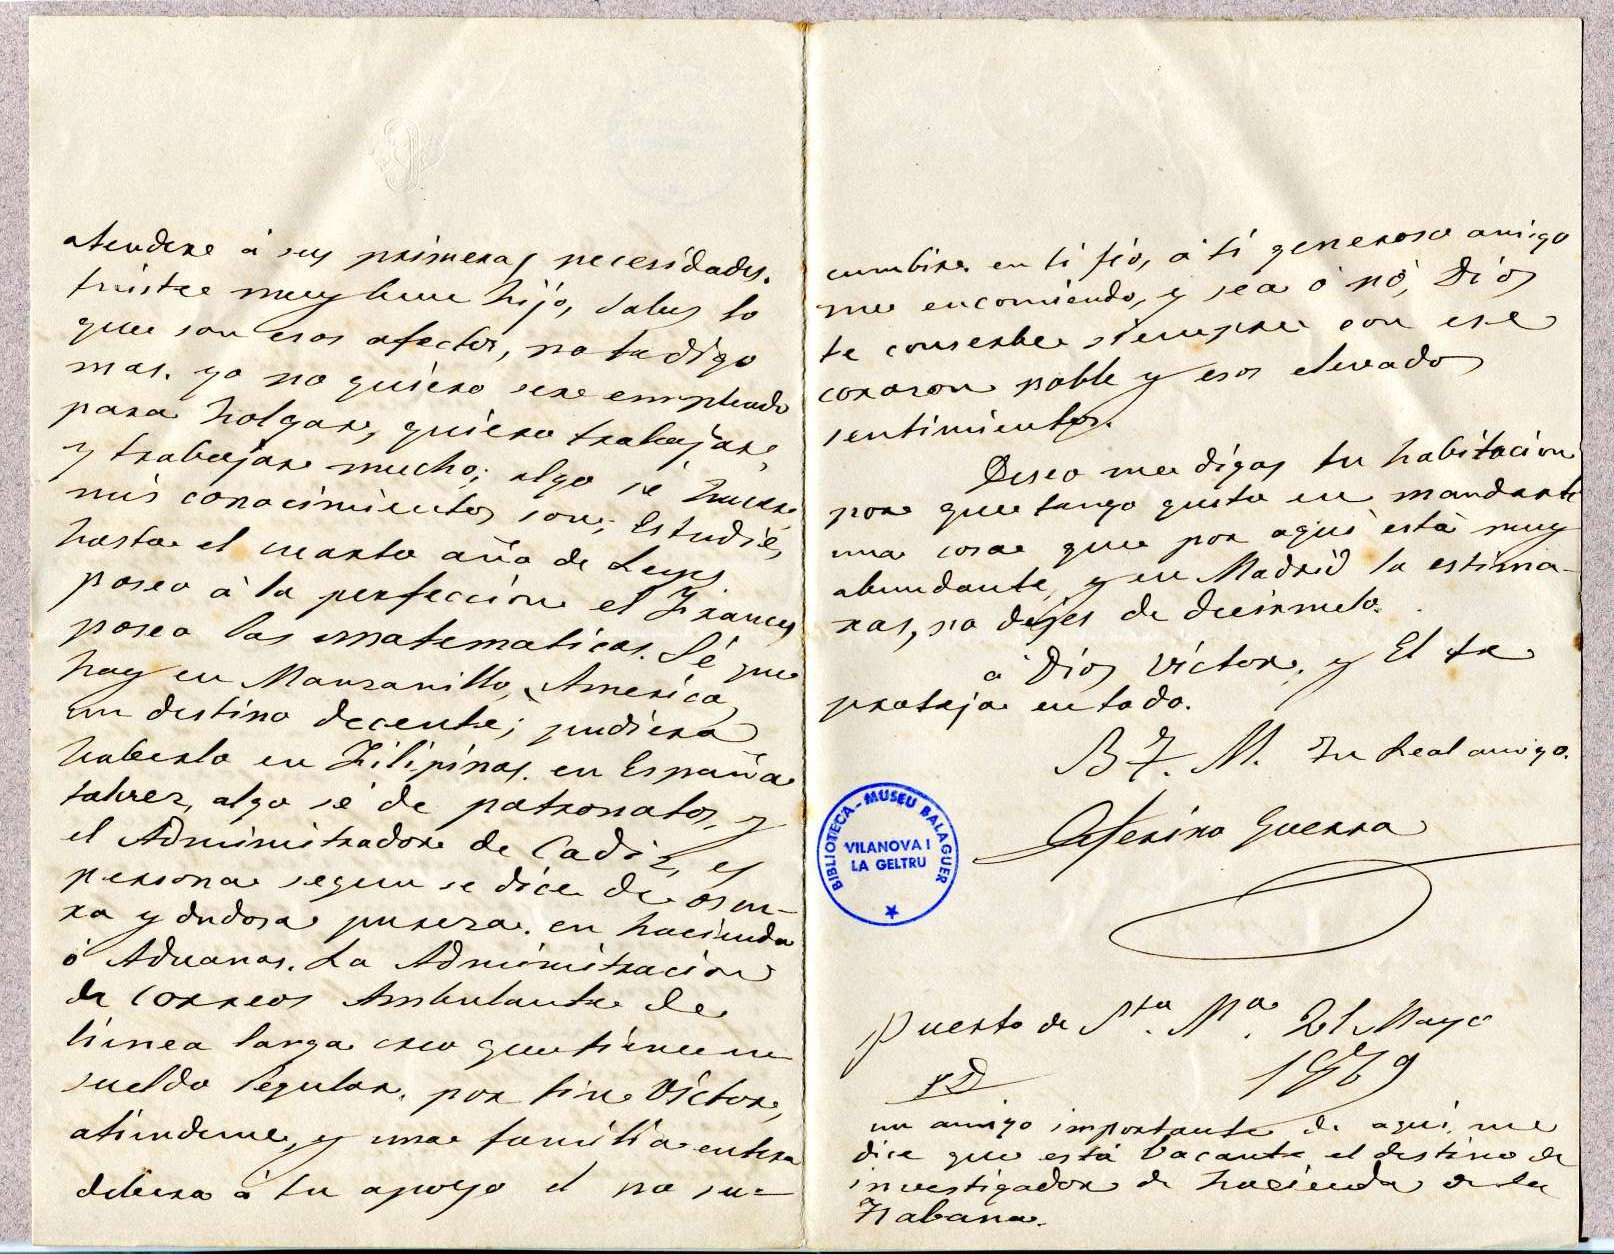 atendere á sus primeras necesidades.
fuistes muy buen hijo, sabes lo
que son esos afectos, no te digo
mas. yo no quiero ser empleado
para holgar, quiero trabajar,
y trabajar mucho; algo sé hacer
mis conocimientos son; Estudié,
hasta el cuarto año de Leyes
poseo á la perfeccion el Frances
poseo las matematicas. Sé que
hay en Manzanillo, America,
un destino decente; pudiera
haberlo en Filipinas. en España
talvez, algo sé de patronatos, y
el Administrador de Cadiz, es
persona segun se dice de oscu-
ra y dudosa pureza. en hacienda
ó Aduanas. La Administracion
de correos Ambulante de
linea larga creo que tienen
sueldo regular. por fin Victor,
atiendeme, y una familia entera
debera á tu apoyo el no su-
cumbir. en ti fió, á ti generoso amigo
me encomiendo, y sea ó nó, Dios
te conserbe siempre con ese
corazon noble y esos elevados
sentimientos.
Deseo me digas tu habitacion
por que tengo gusto en mandarte
una cosa que por aqui está muy
abundante, y en Madrid la estima-
ras, no dejes de decirmelo.
á Dios Victor, y El te
proteja en todo.
B T. M. Tu Leal amigo.
Ceferino Guerra
BIBLIOTECA - MUSEU BALAGUER
VILANOVA I
LA GELTRU
Puerto de Sta. Ma. 21 Mayo
1869
PD
un amigo importante de aqui, me
dice que está bacante el destino de
investigador de hacienda de la
Habana.